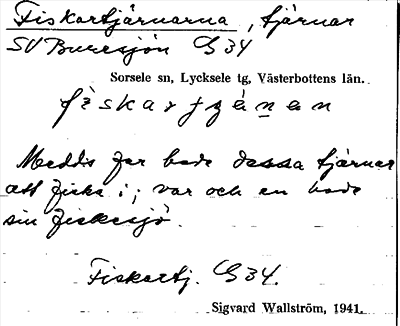 Fiskartjärnarna, tjärnar
SV Buresjön G 34
Sorsele sn, Lycksele tg, Västerbottens län.
fiskartjänan
Meddis far hade dessa tjärnar
att fiska i; var och en hade
sin fiskesjö.
Fiskartj. G 34.
Sigvard Wallström, 1941.